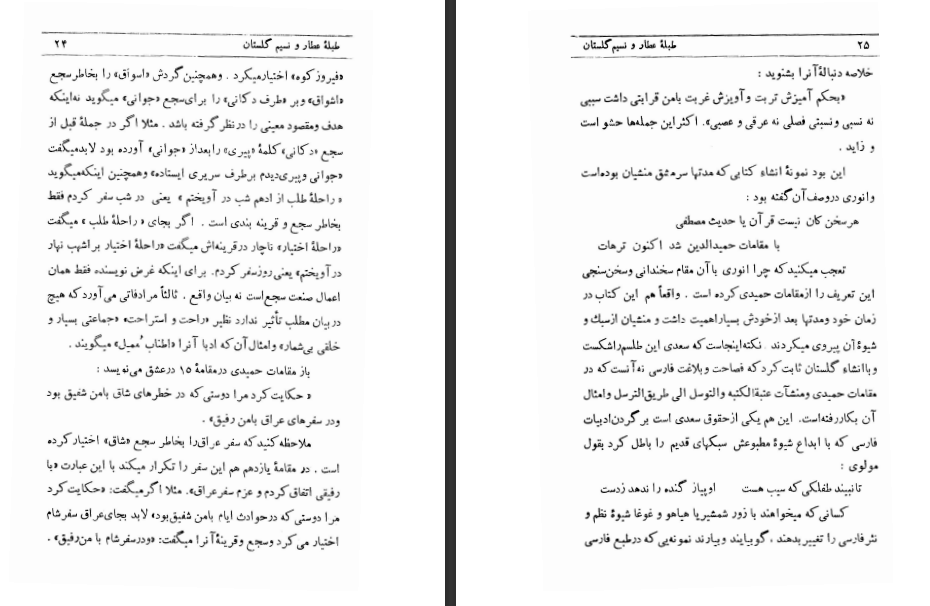 ۲۴ طبلهٔ عطار و نسیم گلستان
«فیروز کوه» اختیار میکرد . وهمچنین گردش «اسواق» را بخاطر سجع
«اشواق» وبر «طرف دکانی» را برای سجع «جوانی» میگوید نه اینکه
هدف ومقصود معینی را در نظر گرفته باشد . مثلا اگر در جملهٔ قبل از
سجع «دکانی» کلمهٔ «پیری» را بعداز «جوانی» آورده بود لابد میگفت
«جوانی و پیری دیدم بر طرف سریری ایستاده» وهمچنین اینکه میگوید
« راحلهٔ طلب از ادهم شب در آویختم » یعنی در شب سفر کردم فقط
بخاطر سجع و قرینه بندی است . اگر بجای « راحلهٔ طلب » میگفت
«راحلهٔ اختیار» ناچار در قرینه‌اش میگفت «راحلهٔ اختیار بر اشهب نهار
در آویختم» یعنی روز سفر کردم. برای اینکه غرض نویسنده فقط همان
اعمال صنعت سجع است نه بیان واقع . ثالثاً مرادفاتی می‌آورد که هیچ
در بیان مطلب تأثیر ندارد نظیر «راحت و استراحت» «جماعتی بسیار و
خلقی بی‌شمار» و امثال آن که ادبا آنرا «اطناب مُمِل» میگویند .
باز مقامات حمیدی در مقامهٔ ۱۵ در عشق می‌نویسد :
« حکایت کرد مرا دوستی که در خطرهای شاق بامن شفیق بود
ودر سفرهای عراق بامن رفیق» .
ملاحظه کنید که سفر عراق را بخاطر سجع «شاق» اختیار کرده
است . در مقامهٔ یازدهم هم این سفر را تکرار میکند با این عبارت «با
رفیقی اتفاق کردم و عزم سفر عراق». مثلا اگر میگفت: «حکایت کرد
مرا دوستی که در حوادث ایام بامن شفیق بود» لابد بجای عراق سفر شام
اختیار می کرد و سجع و قرینهٔ آنرا میگفت: «ودر سفر شام با من رفیق» .
طبلهٔ عطار و نسیم گلستان ۲۵
خلاصه دنبالهٔ آنرا بشنوید :
«بحکم آمیزش تربت و آویزش غربت بامن قرابتی داشت سببی
نه نسبی ونسبتی فصلی نه عرقی و عصبی». اکثر این جمله‌ها حشو است
و زاید .
این بود نمونهٔ انشاء کتابی که مدتها سرمشق منشیان بوده است
وانوری در وصف آن گفته بود :
هر سخن کان نیست قرآن یا حدیث مصطفی
با مقامات حمیدالدین شد اکنون ترهات
تعجب میکنید که چرا انوری با آن مقام سخندانی وسخن‌سنجی
این تعریف را از مقامات حمیدی کرده است . واقعاً هم این کتاب در
زمان خود ومدتها بعد از خودش بسیار اهمیت داشت و منشیان از سبك و
شیوهٔ آن پیروی میکردند . نکته اینجاست که سعدی این طلسم را شکست
وبا انشاء گلستان ثابت کرد که فصاحت و بلاغت فارسی نه آنست که در
مقامات حمیدی ومنشآت عتبةالکتبه والتوسل الی طریق الترسل وامثال
آن بکار رفته است. این هم یکی از حقوق سعدی است بر گردن ادبیات
فارسی که با ابداع شیوهٔ مطبوعش سبکهای قدیم را باطل کرد بقول
مولوی :
تا نبیند طفلکی که سیب هست اوپیاز گنده را ندهد زدست
کسانی که میخواهند با زور شمشیر یا هیاهو و غوغا شیوهٔ نظم و
نثر فارسی را تغییر بدهند ، گو بیایند و بیارند نمونه‌یی که در طبع فارسی